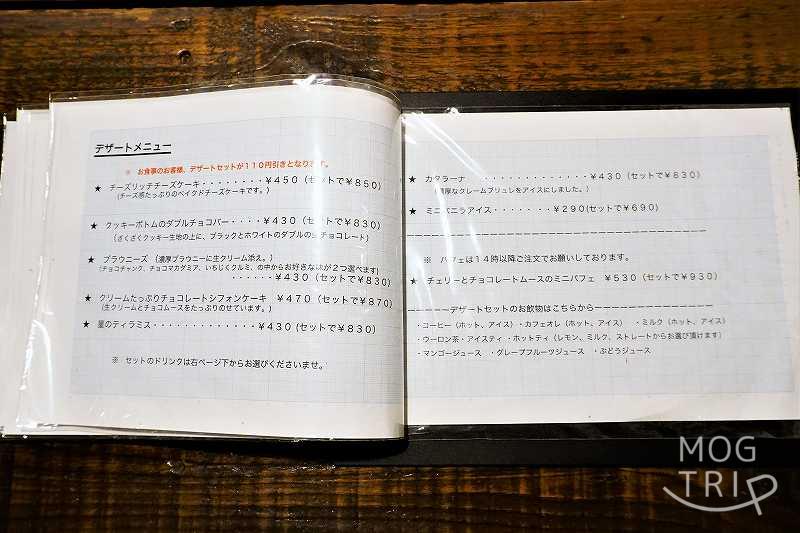 デザートメニュー
※ お食事のお客様、デザートセットが110円引きとなります。
★ チーズリッチチーズケーキ・・・・・・・・¥450（セットで¥850）
（チーズ感たっぷりのベイクドチーズケーキです。）
★ クッキーボトムのダブルチョコバー・・・・¥430（セットで¥830）
（ざくざくクッキー生地の上に、ブラックとホワイトのダブルの生チョコレート）
★ ブラウニーズ（濃厚ブラウニーに生クリーム添え。）
（チョコチャンク、チョコマカダミア、いちじくクルミ、の中からお好きな味が２つ選べます）
・・・・・・¥430（セットで¥830）
★ クリームたっぷりチョコレートシフォンケーキ ¥470（セットで¥870）
（生クリームとチョコムースをたっぷりのせています。）
★ 星のティラミス・・・・・・・・・・・・・¥430（セットで¥830）
※ セットのドリンクは右ページ下からお選びくださいませ。
★ カタラーナ ・・・・・・・・・・・・・・¥430（セットで¥830）
（濃厚なクレームブリュレをアイスにしました。）
★ ミニバニラアイス・・・・・・・¥290(セットで¥690)
※ パフェは１４時以降ご注文でお願いしております。
★ チェリーとチョコレートムースのミニパフェ ¥530（セットで¥930）
――――デザートセットのお飲物はこちらから――――
・コーヒー（ホット、アイス）・カフェオレ（ホット、アイス） ・ミルク（ホット、アイス）
・ウーロン茶・アイスティ・ホットティ（レモン、ミルク、ストレートからお選び頂けます）
・マンゴージュース ・グレープフルーツジュース ・ぶどうジュース
MOG
TRIP